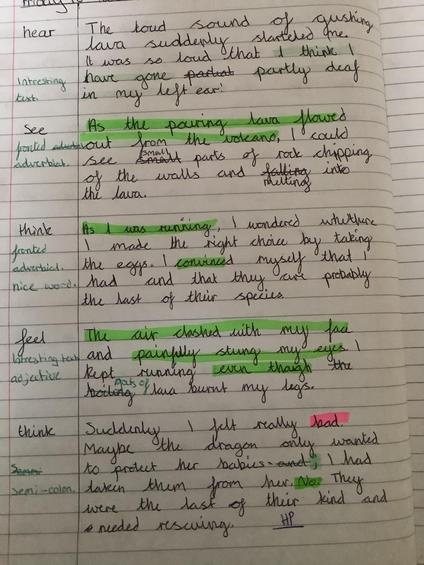 hear The loud sound of gushing
lava suddenly starteled me.
It was so loud that I think I
Intresting have gone partial partly deaf
text. in my left ear!
See As the pouring lava flowed
fronted adverbial out from the volcano, I could
adverbial. see small small parts of rock chipping
of the walls and falling melting into
the lava.
think As I was running, I wondered whethure
fronted I made the right choice by taking
adverbial. the eggs. I convinced myself that I
nice word. had and that they are probably
the last of their species.
feel The air clashed with my face
Intresting text and painfully stung my eyes. I
adjective kept running even though the
boiling parts of lava burnt my legs.
think Suddenly I felt really bad.
Maybe the dragon only wanted
to protect her babies and; I had
semi-colon. taken them from her. No. They
were the last of their kind and
needed rescuing. HP